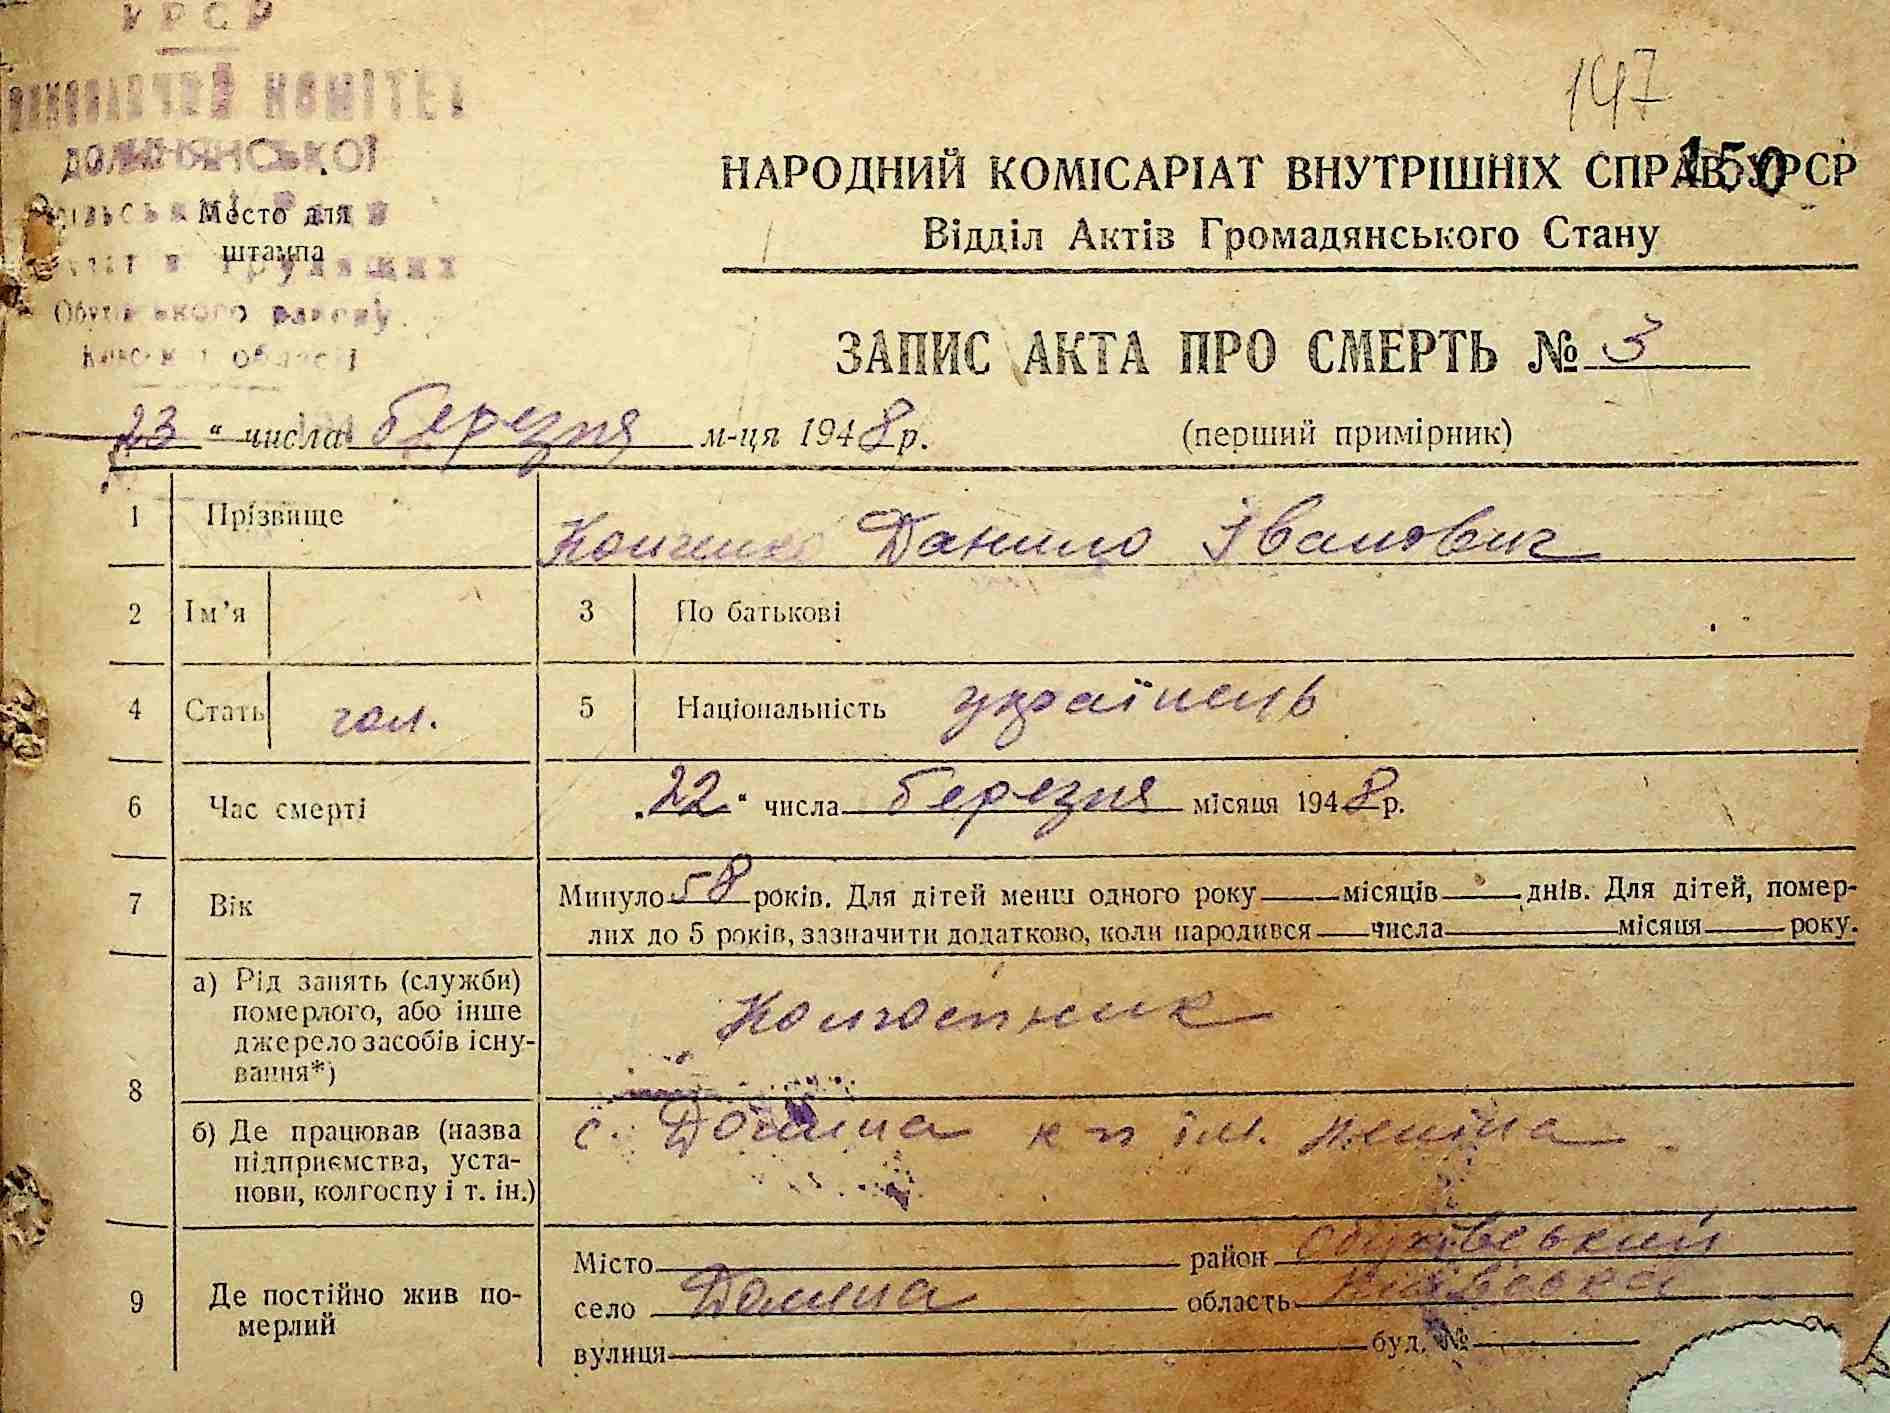 УРСР
ВИКОНАВЧИЙ КОМІТЕТ
ДОЛИНЯНСЬКОЇ
сільської Ради
Место для
штампа
трудящих
Обухівського району
Київської області
147
150
НАРОДНИЙ КОМІСАРІАТ ВНУТРІШНІХ СПРАВ УРСР
Відділ Актів Громадянського Стану
ЗАПИС АКТА ПРО СМЕРТЬ № 3
23 “ числа березня м-ця 1948 р.
(перший примірник)
1 Прізвище Данило Іванович
2 Ім’я 3 По батькові
4 Стать чол. 5 Національність українець
6 Час смерті „22“ числа березня місяця 1948 р.
7 Вік Минуло 58 років. Для дітей менш одного року місяців днів. Для дітей, помер-
лих до 5 років, зазначити додатково, коли народився числа місяця року.
8 а) Рід занять (служби)
померлого, або інше
джерело засобів існу-
вання*)
Колгоспник
б) Де працював (назва
підприємства, уста-
нови, колгоспу і т. ін.)
с. Долина к-п ім. Леніна
9 Де постійно жив по-
мерлий
Місто район Обухівський
село Долина область Київська
вулиця буд. №